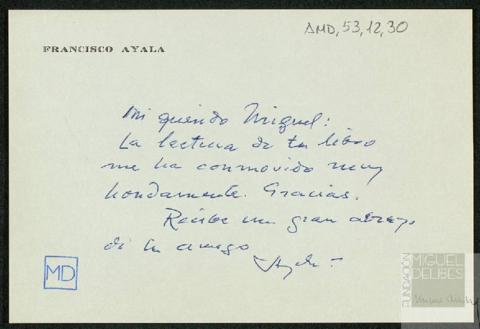 AMD, 53, 12, 30
FRANCISCO AYALA
Mi querido Miguel:
La lectura de tu libro
me ha conmovido muy
hondamente. Gracias.
Recibe un gran abrazo
de tu amigo
Ayala
MD
FUNDACIÓN
MIGUEL
DELIBES